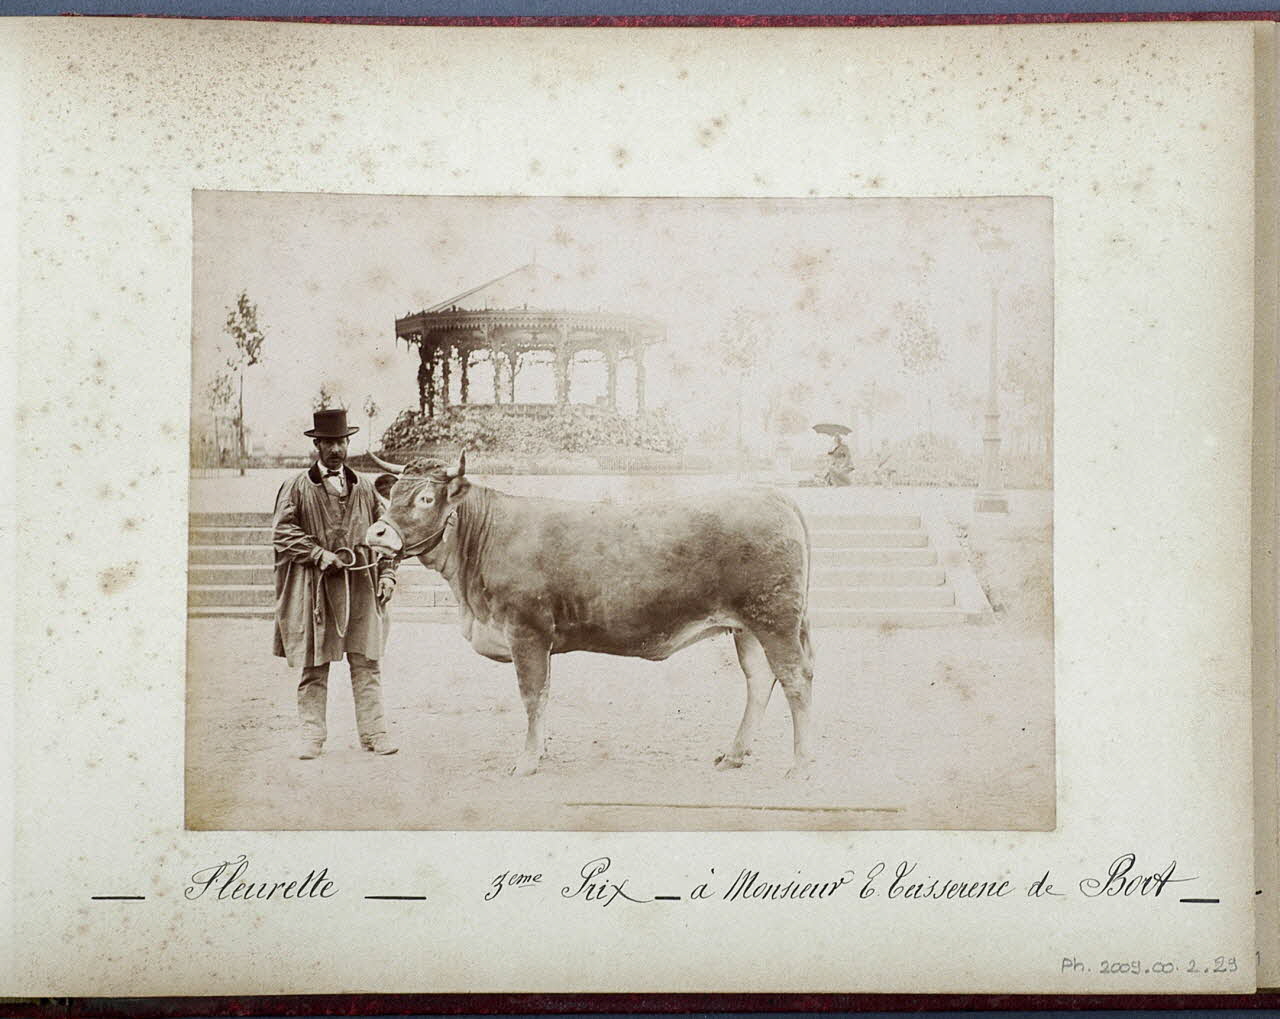 — Fleurette — 3eme Prix — à Monsieur E. Teisserenc de Bort —
Ph. 2009.00.2.29